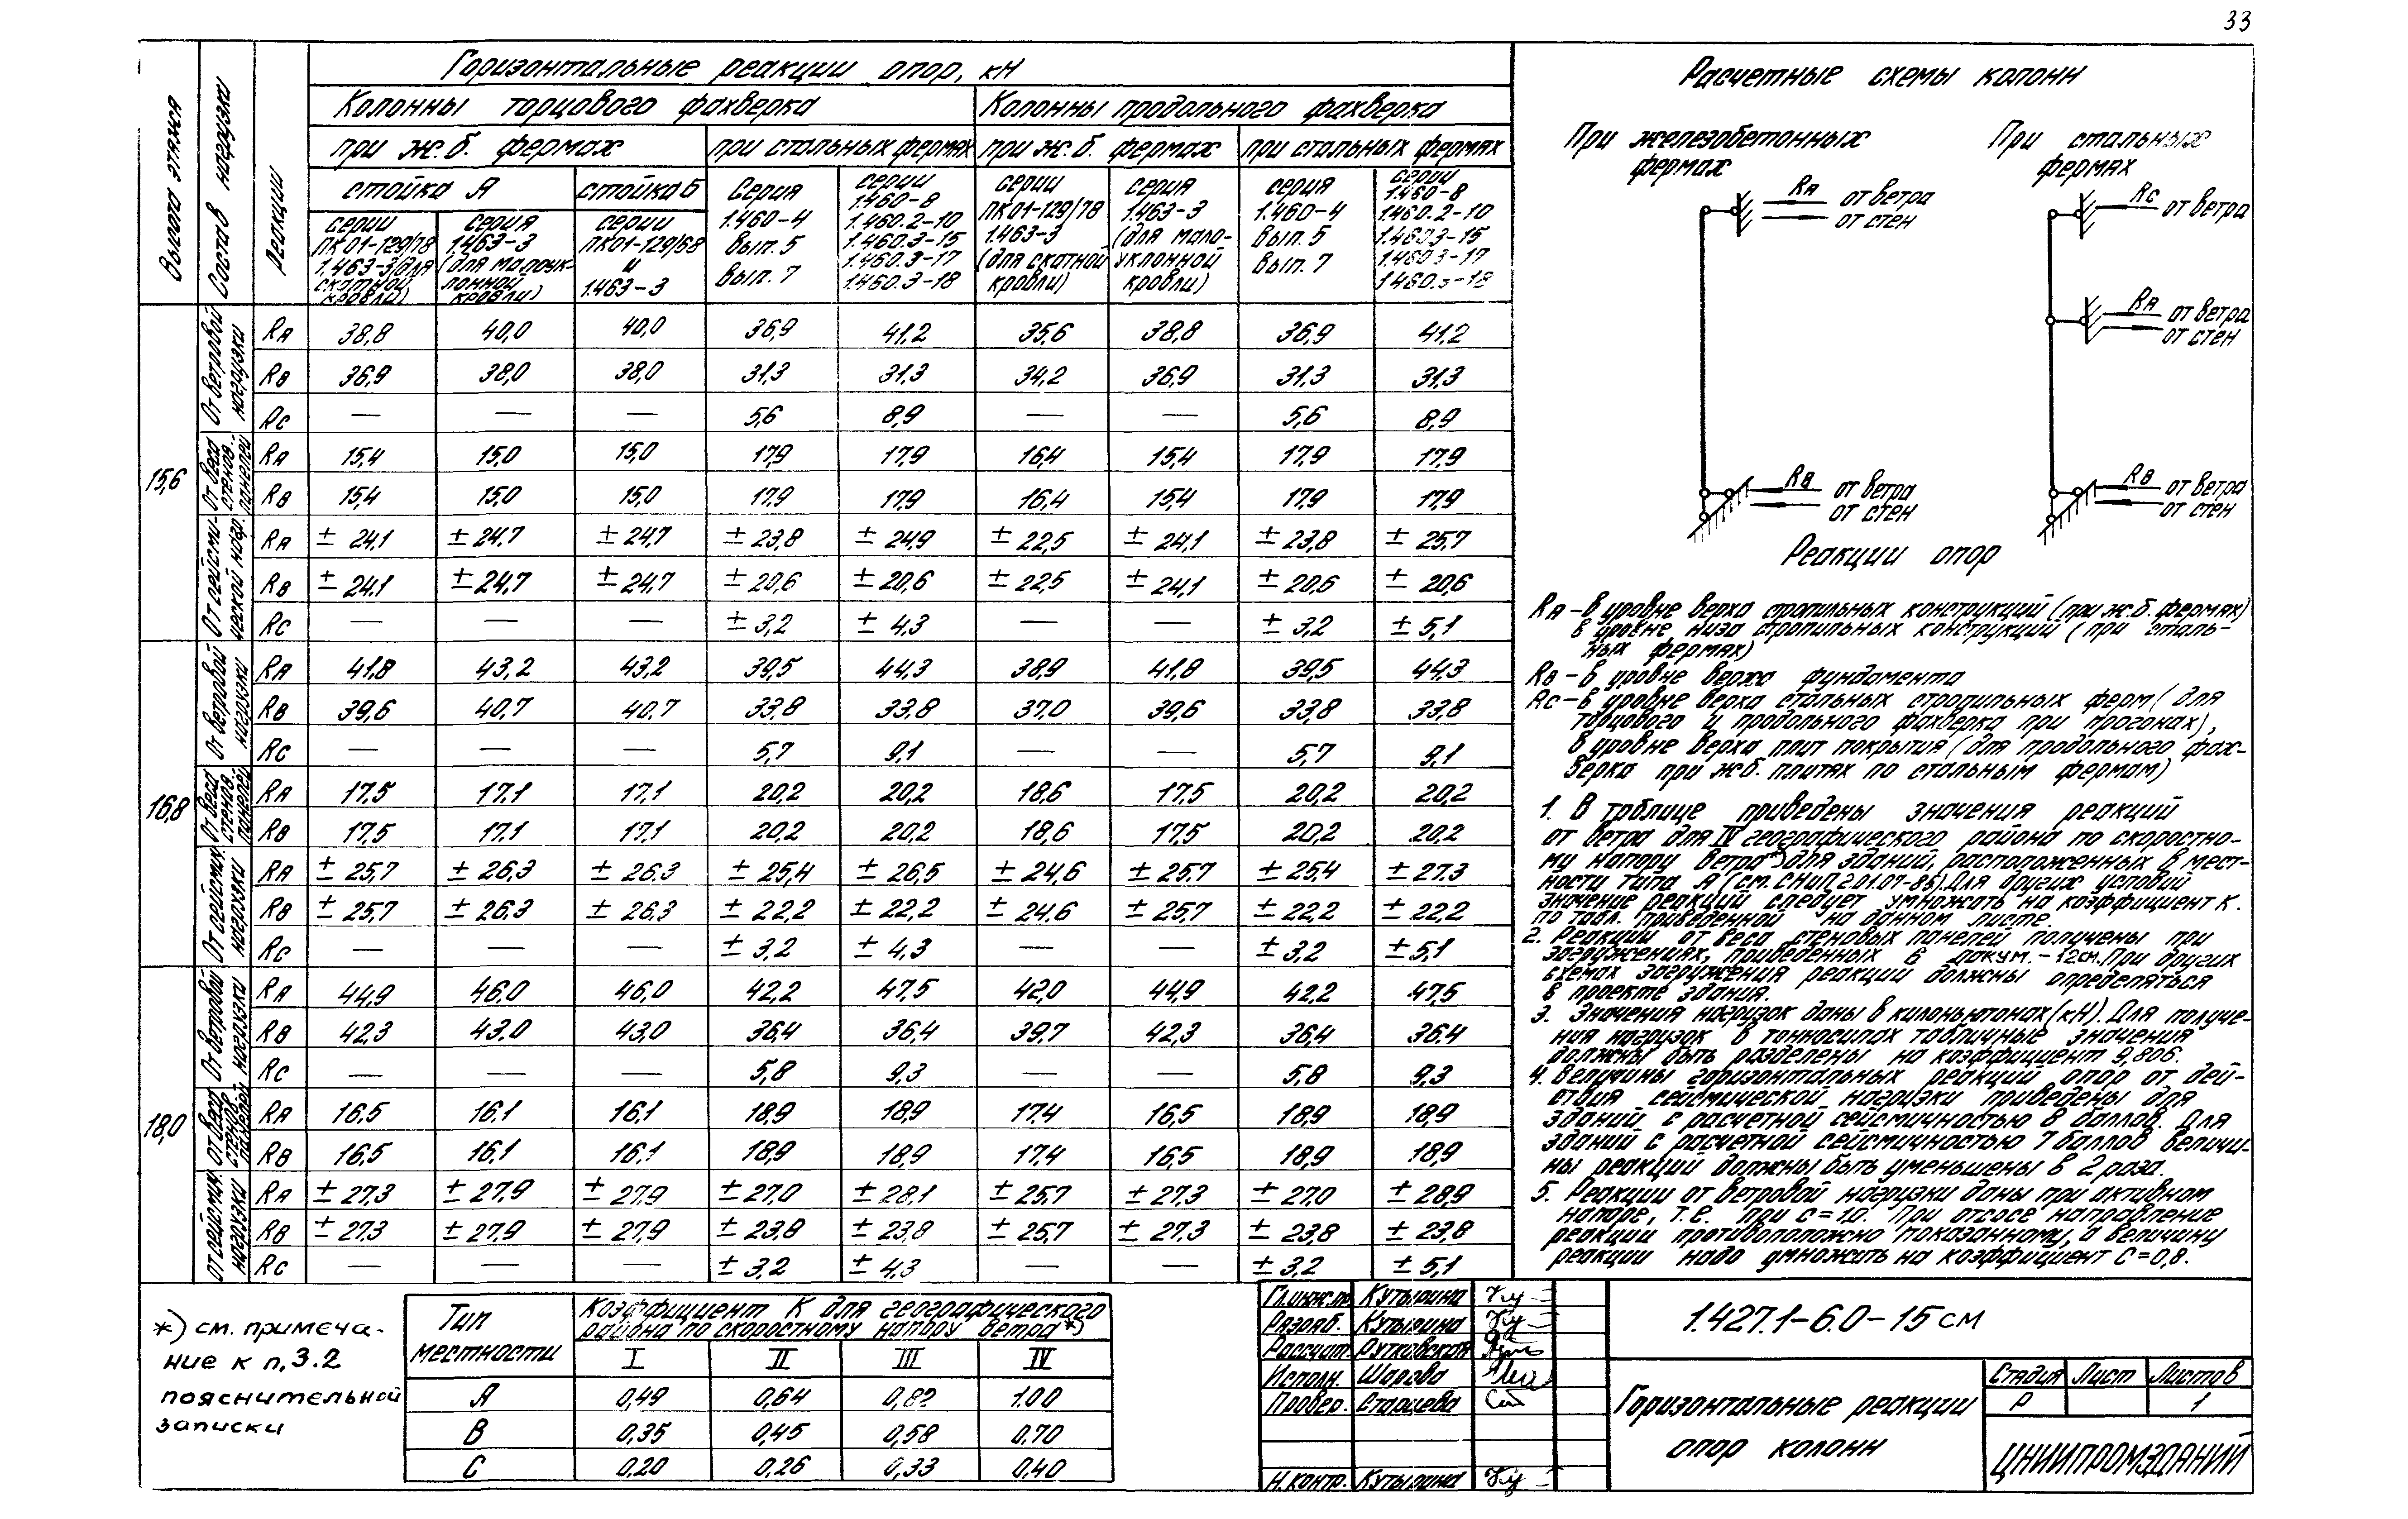 33
Горизонтальные реакции опор, кН
Колонны торцового фахверка | Колонны продольного фахверка
при ж.б. фермах | при стальных фермах | при ж.б. фермах | при стальных фермах
Высота этажа
Состав нагрузки
Реакции
стойка А | стойка Б
серии
ПК01-129/78
1.463-3 (для
скатной
кровли)
серия
1.463-3
(для малоук-
лонной
кровли)
серии
ПК01-129/68
и
1.463-3
Серия
1.460-4
вып. 5
вып. 7
серии
1.460-8
1.460.2-10
1.460.3-15
1.460.3-17
1.460.3-18
серии
ПК01-129/78
1.463-3
(для скатной
кровли)
серия
1.463-3
(для мало-
уклонной
кровли)
серия
1.460-4
вып. 5
вып. 7
серии
1.460-8
1.460.2-10
1.460.3-15
1.460.3-17
1.460.3-18
15,6
От ветровой нагрузки
RА 38,8 40,0 40,0 36,9 41,2 35,6 38,8 36,9 41,2
RВ 36,9 38,0 38,0 31,3 31,3 34,2 36,9 31,3 31,3
RС — — — 5,6 8,9 — — 5,6 8,9
От веса стенов. панелей
RА 15,4 15,0 15,0 17,9 17,9 16,4 15,4 17,9 17,9
RВ 15,4 15,0 15,0 17,9 17,9 16,4 15,4 17,9 17,9
От сейсми- ческой нагр.
RА ± 24,1 ± 24,7 ± 24,7 ± 23,8 ± 24,9 ± 22,5 ± 24,1 ± 23,8 ± 25,7
RВ ± 24,1 ± 24,7 ± 24,7 ± 20,6 ± 20,6 ± 22,5 ± 24,1 ± 20,6 ± 20,6
RС — — — ± 3,2 ± 4,3 — — ± 3,2 ± 5,1
16,8
От ветровой нагрузки
RА 41,8 43,2 43,2 39,5 44,3 38,9 41,8 39,5 44,3
RВ 39,6 40,7 40,7 33,8 33,8 37,0 39,6 33,8 33,8
RС — — — 5,7 9,1 — — 5,7 9,1
От веса стенов. панелей
RА 17,5 17,1 17,1 20,2 20,2 18,6 17,5 20,2 20,2
RВ 17,5 17,1 17,1 20,2 20,2 18,6 17,5 20,2 20,2
От сейсмич. нагрузки
RА ± 25,7 ± 26,3 ± 26,3 ± 25,4 ± 26,5 ± 24,6 ± 25,7 ± 25,4 ± 27,3
RВ ± 25,7 ± 26,3 ± 26,3 ± 22,2 ± 22,2 ± 24,6 ± 25,7 ± 22,2 ± 22,2
RС — — — ± 3,2 ± 4,3 — — ± 3,2 ± 5,1
18,0
От ветровой нагрузки
RА 44,9 46,0 46,0 42,2 47,5 42,0 44,9 42,2 47,5
RВ 42,3 43,0 43,0 36,4 36,4 39,7 42,3 36,4 36,4
RС — — — 5,8 9,3 — — 5,8 9,3
От веса стенов. панелей
RА 16,5 16,1 16,1 18,9 18,9 17,4 16,5 18,9 18,9
RВ 16,5 16,1 16,1 18,9 18,9 17,4 16,5 18,9 18,9
от сейсмич. нагрузки
RА ± 27,3 ± 27,9 ± 27,9 ± 27,0 ± 28,1 ± 25,7 ± 27,3 ± 27,0 ± 28,9
RВ ± 27,3 ± 27,9 ± 27,9 ± 23,8 ± 23,8 ± 25,7 ± 27,3 ± 23,8 ± 23,8
RС — — — ± 3,2 ± 4,3 — — ± 3,2 ± 5,1
Расчетные схемы колонн
При железобетонных
фермах
RА от ветра
от стен
RВ от ветра
от стен
При стальных
фермах
RС от ветра
RА от ветра
от стен
RВ от ветра
от стен
Реакции опор
RА – в уровне верха стропильных конструкций (при ж.б. фермах)
в уровне низа стропильных конструкций (при сталь-
ных фермах)
RВ – в уровне верха фундамента
RС – в уровне верха стальных стропильных ферм (для
торцового и продольного фахверка при прогонах),
в уровне верха плит покрытия (для продольного фах-
верка при ж.б. плитах по стальным фермам)
1. В таблице приведены значения реакций
от ветра для IV географического района по скоростно-
му напору ветра*) для зданий, расположенных в мест-
ности типа А (см. СНиП 2.01.07-85). Для других условий
значение реакций следует умножать на коэффициент К.
по табл. приведенной на данном листе.
2. Реакции от веса стеновых панелей получены при
загружениях, приведенных в докум. -12см. При других
схемах загружения реакции должны определяться
в проекте здания.
3. Значения нагрузок даны в килоньютонах (кН). Для получе-
ния нагрузок в тонносилах табличные значения
должны быть разделены на коэффициент 9,806.
4. Величины горизонтальных реакций опор от дей-
ствия сейсмической нагрузки приведены для
зданий с расчетной сейсмичностью 8 баллов. Для
зданий с расчетной сейсмичностью 7 баллов величи-
ны реакций должны быть уменьшены в 2 раза.
5. Реакции от ветровой нагрузки даны при активном
напоре, т.е. при с=1,0. При отсосе направление
реакции противоположно показанному, а величину
реакции надо умножать на коэффициент С=0,8.
*) см. примеча-
ние к п. 3.2
пояснительной
записки
Тип
местности
Коэффициент К для географического
района по скоростному напору ветра*)
I II III IV
А 0,49 0,64 0,82 1.00
В 0,35 0,45 0,58 0,70
С 0,20 0,26 0,33 0,40
Гл.инж.пр Кутырина
Разраб. Кутырина
Рассчит. Рутковская
Исполн. Шарова
Провер. Старцева
Н.контр. Кутырина
1.427.1-6.0-15 см
Горизонтальные реакции
опор колонн
Стадия Лист Листов
Р 1
ЦНИИПРОМЗДАНИЙ